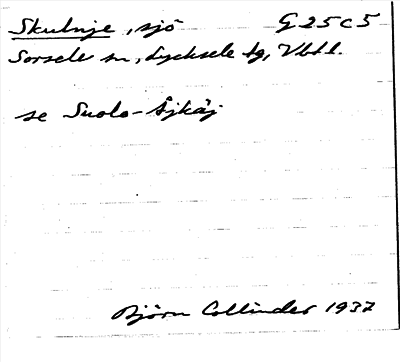 Skulnje, sjö G 25 C 5
Sorsele sn, Lycksele tg, Vbtl.
se Suolo-Ájkáj
Björn Collinder 1937